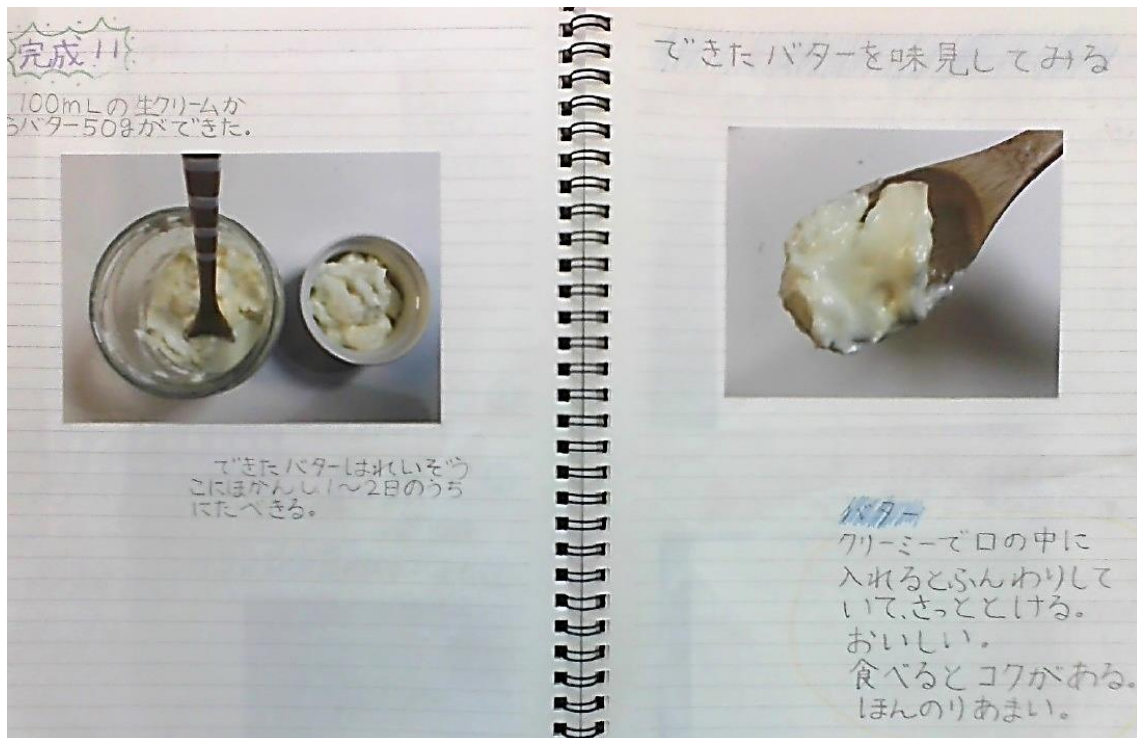 完成!!
100mLの生クリームか
らバター50gができた.
できたバターはれいぞう
こにほかんし1～2日のうち
にたべきる。
できたバターを味見してみる
バター
クリーミーで口の中に
入れるとふんわりして
いて、さっととける。
おいしい。
食べるとコクがある。
ほんのりあまい。